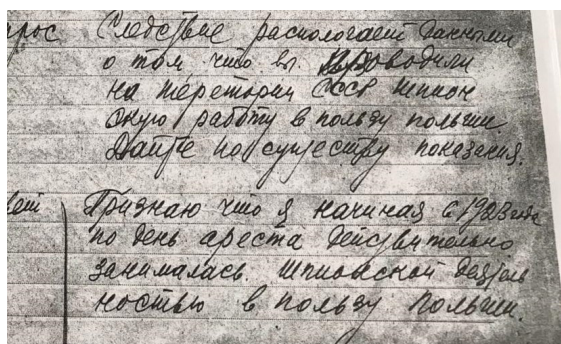 прос Следствие распологает данными
о том что вы проводили
на теретории СССР шпион
скую работу в пользу польши.
Дайте по существу показания.
вет Признаю что я начиная с 1923 года
по день ареста действительно
занималась шпионской деятель
ностью в пользу польши.